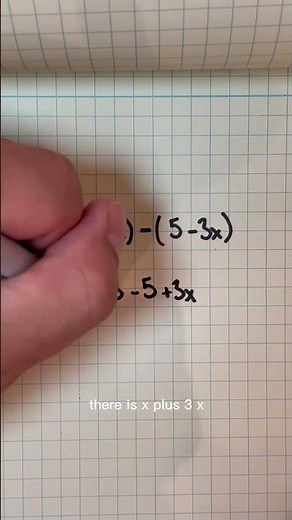 ) -(5-3x)
-5+3x
there is x plus 3 x